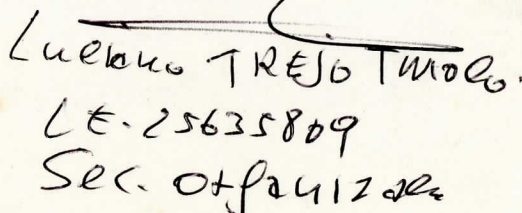 Luciano TREJO Tmolo.
LE. 25635809
Sec. Organización